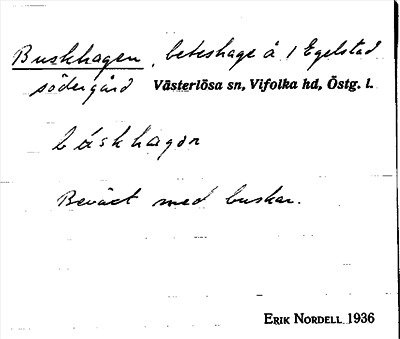 Buskhagen, beteshage å 1 Egelstad
södergård Västerlösa sn, Vifolka hd, Östg. l.
båskhagɘn
Beväxt med buskar.
ERIK NORDELL 1936